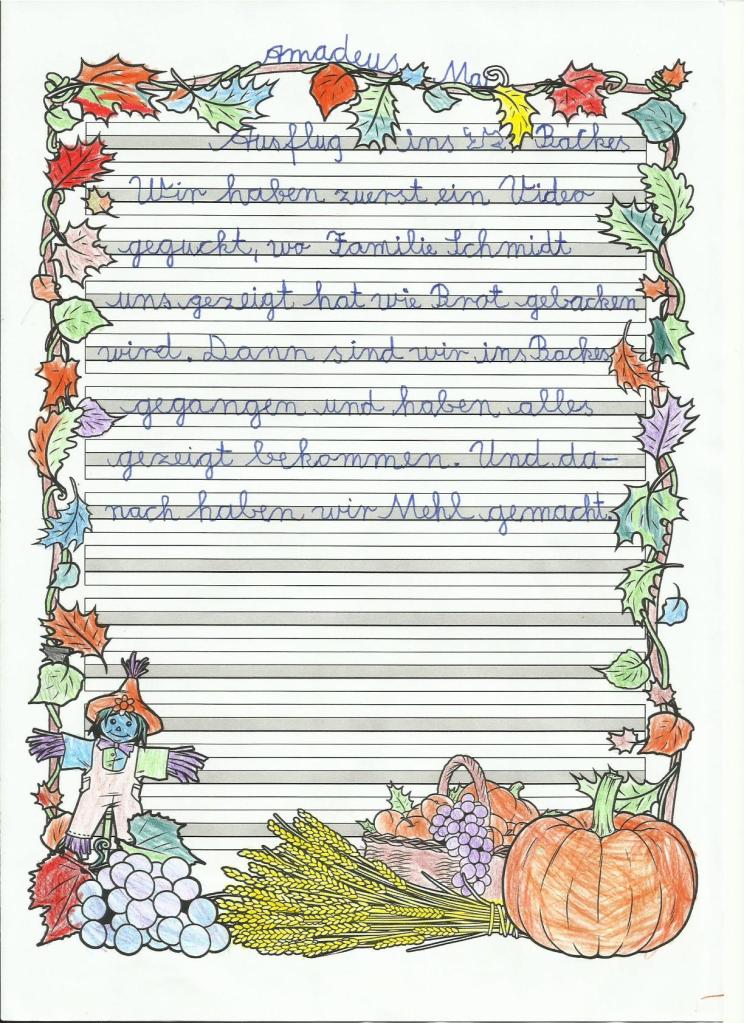 Amadeus Ma
Ausflug ins Backes
Wir haben zuerst ein Video
geguckt, wo Familie Schmidt
uns gezeigt hat wie Brot gebacken
wird. Dann sind wir ins Backes
gegangen und haben alles
gezeigt bekommen. Und da-
nach haben wir Mehl gemacht.